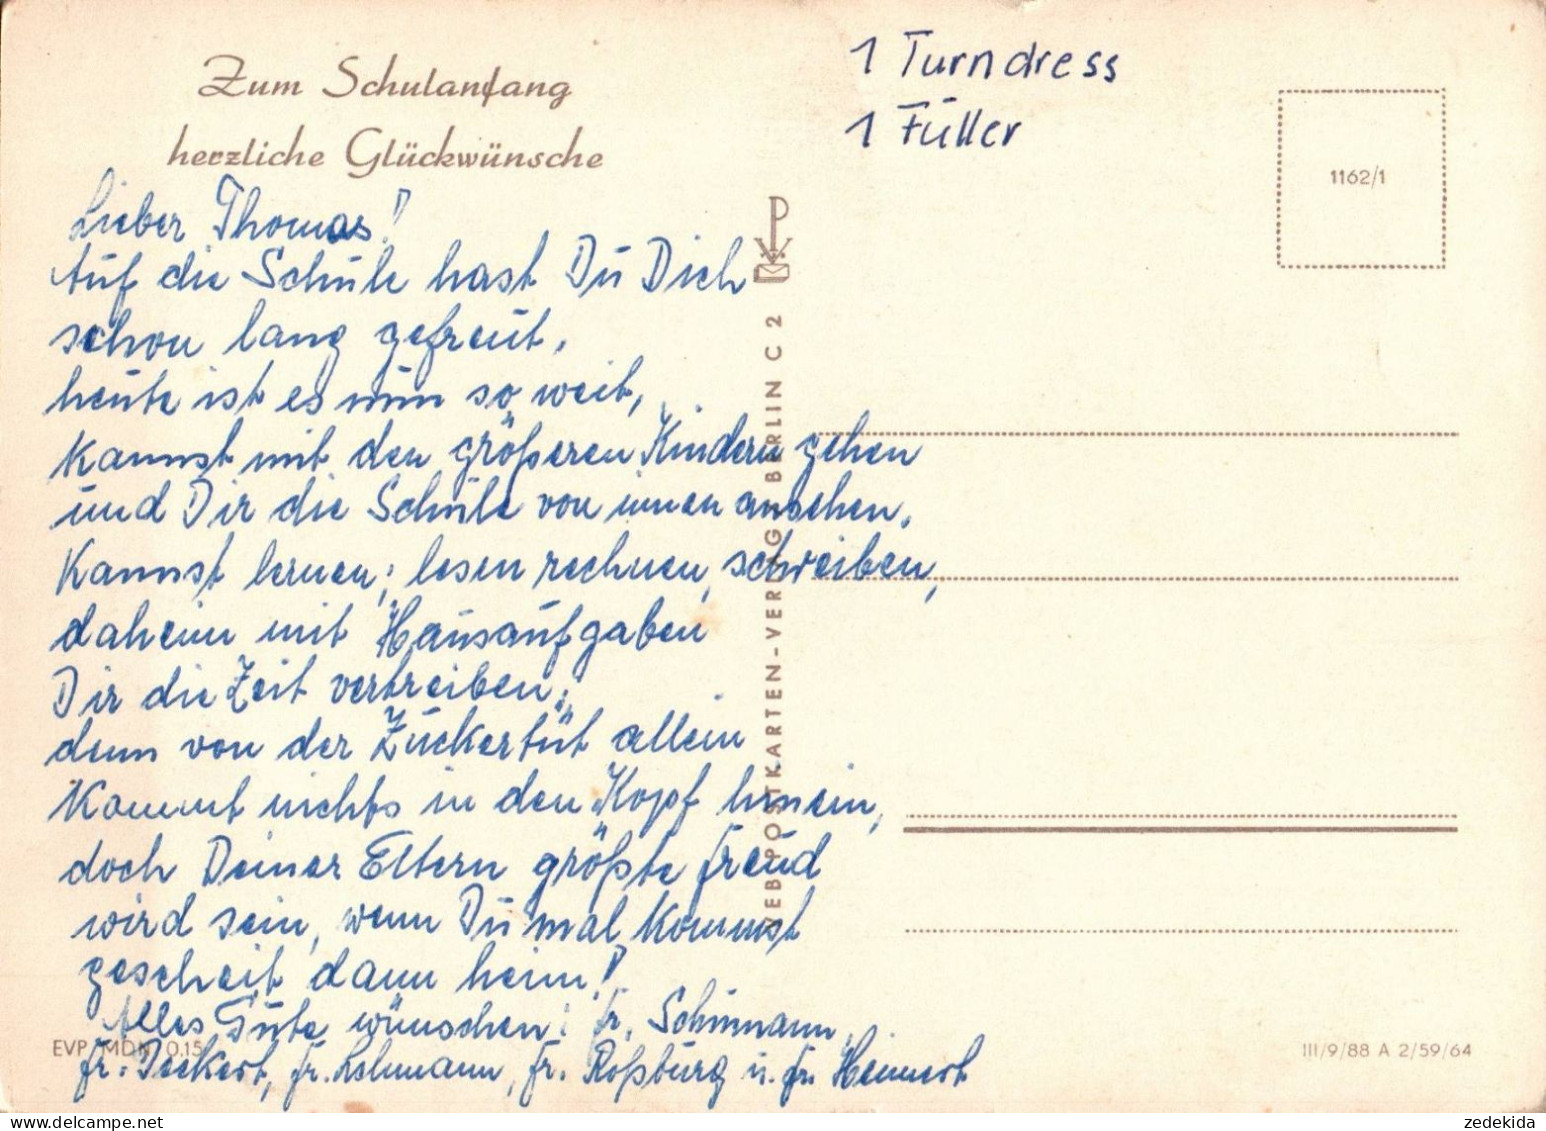 Zum Schulanfang
herzliche Glückwünsche
Lieber Thomas!
Auf die Schule hast Du Dich
schon lang gefreut,
heute ist es nun so weit,
kannst mit den größeren Kindern gehen
und Dir die Schule von innen ansehen.
Kannst lernen; lesen rechnen, schreiben,
daheim mit Hausaufgaben
Dir die Zeit vertreiben;
denn von der Zuckertüt allein
kommt nichts in den Kopf hinein,
doch Deiner Eltern größte Freud
wird sein, wenn Du mal kommst
gescheit dann heim!
Alles Gute wünschen: Fr. Schumann,
Fr. Lehmann, Fr. Roßburg u. Fr. Heinert
EVP MDN 0,15
1 Turndress
1 Füller
1162/1
VEB POSTKARTEN-VERLAG BERLIN C 2
III/9/88 A 2/59/64
zedekida